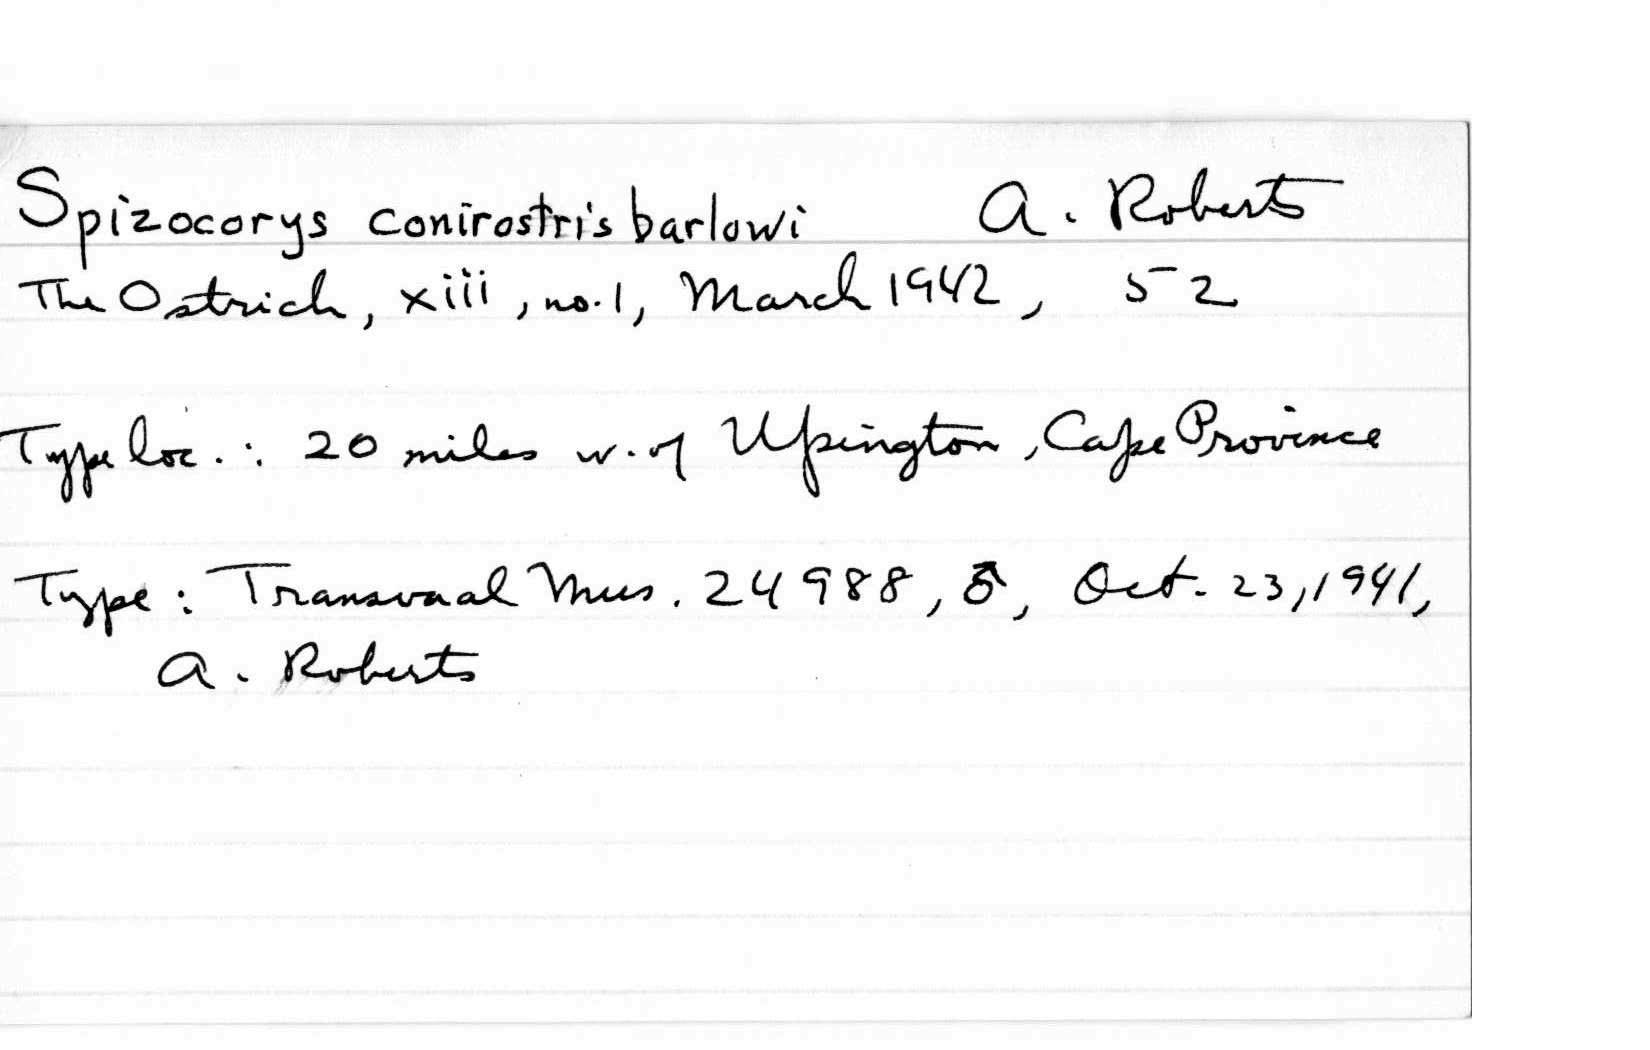 Spizocorys conirostris barlowi A. Roberts
The Ostrich, xiii, no. 1, March 1942, 52
Type loc.: 20 miles w. of Upington, Cape Province
Type: Transvaal Mus. 24988, ♂, Oct. 23, 1941,
A. Roberts